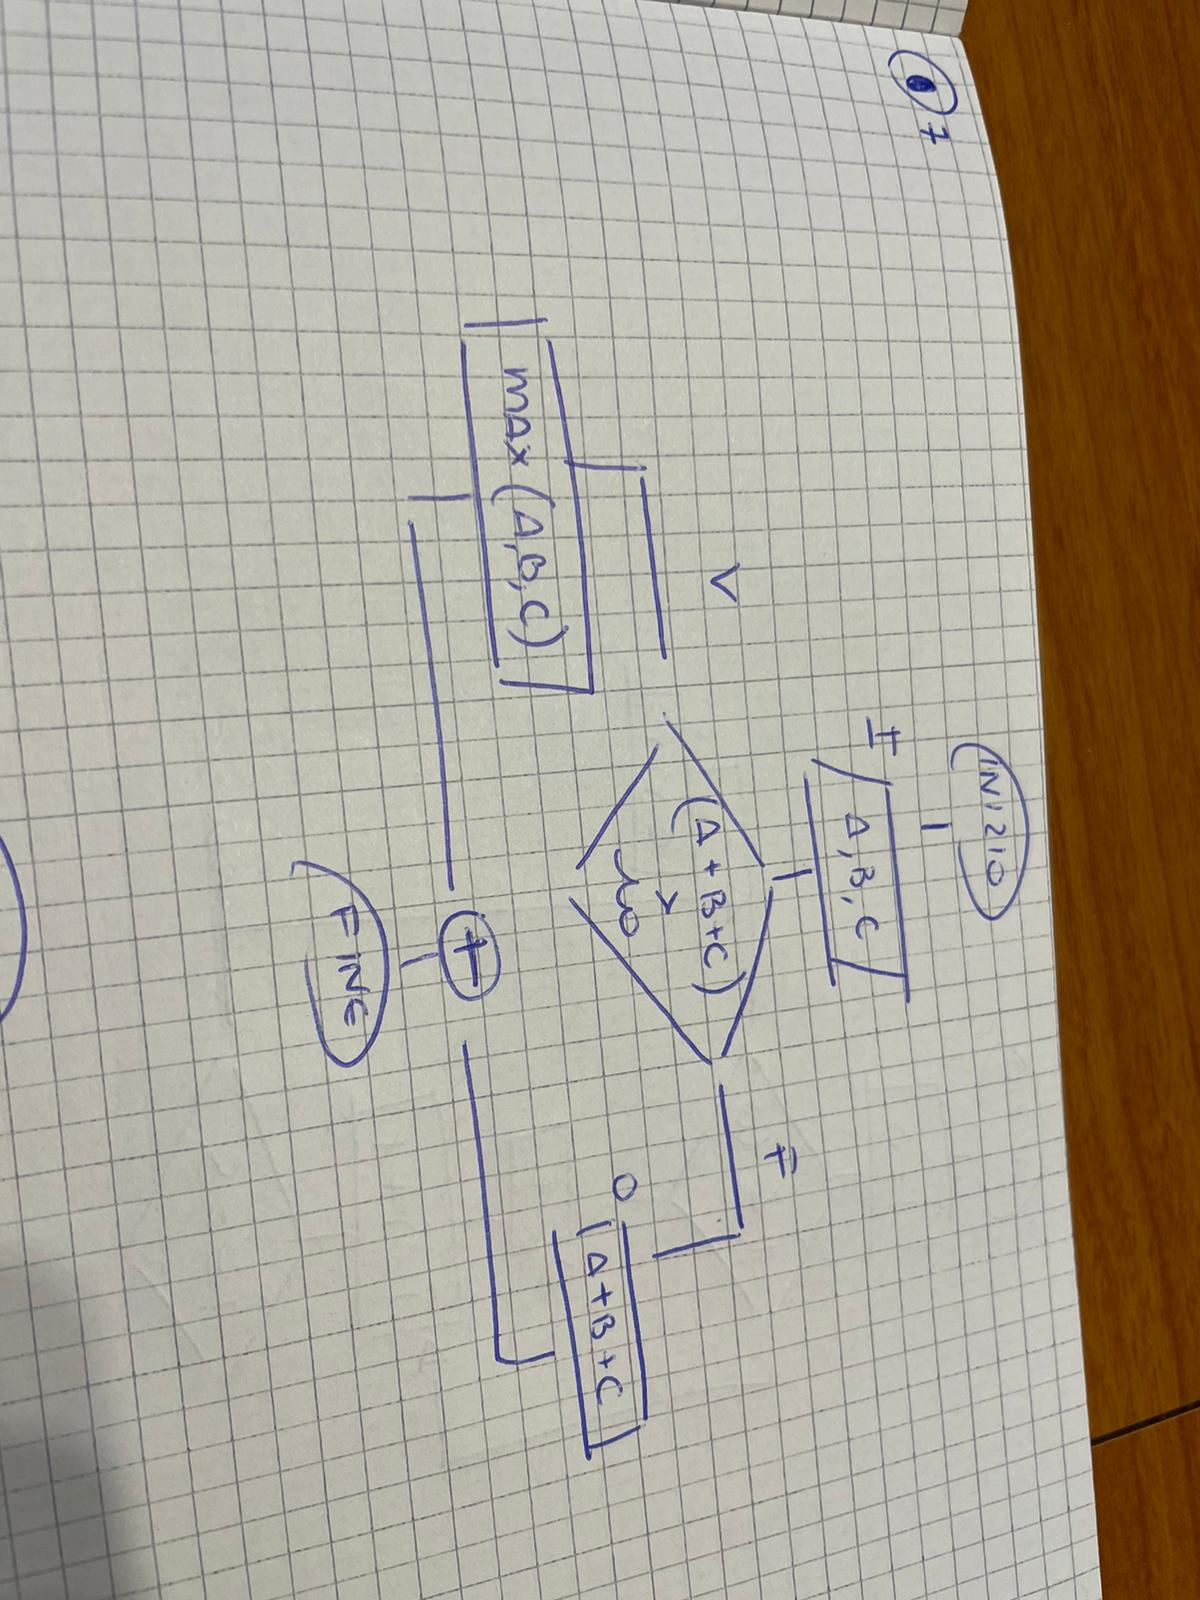 7
INIZIO
I A, B, C
(A+B+C)
>
10
V
F
max (A, B, C)
O
A+B+C
+
FINE